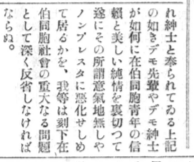 れ紳士と奉られてゐる上記
の如きデモ先輩やデモ紳士
が如何に在伯同胞青年の信
頼と美しい純情を裏切つて
遂にその所謂意氣地無しや
ノンプレスタに惡化せしめ
て居るかを、我等は刻下在
伯同胞社會の重大なる問題
として深く反省しなければ
ならぬ。